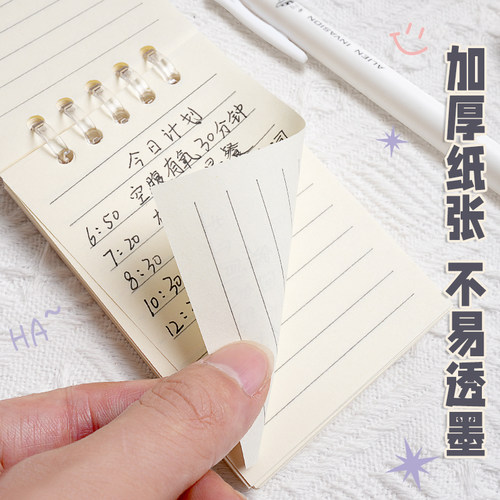 加厚纸张 不易透墨
ALIEN INVASION
今日计划
6:50 空腹有氧30分钟
7:20
8:30
10:30
12:
HA~